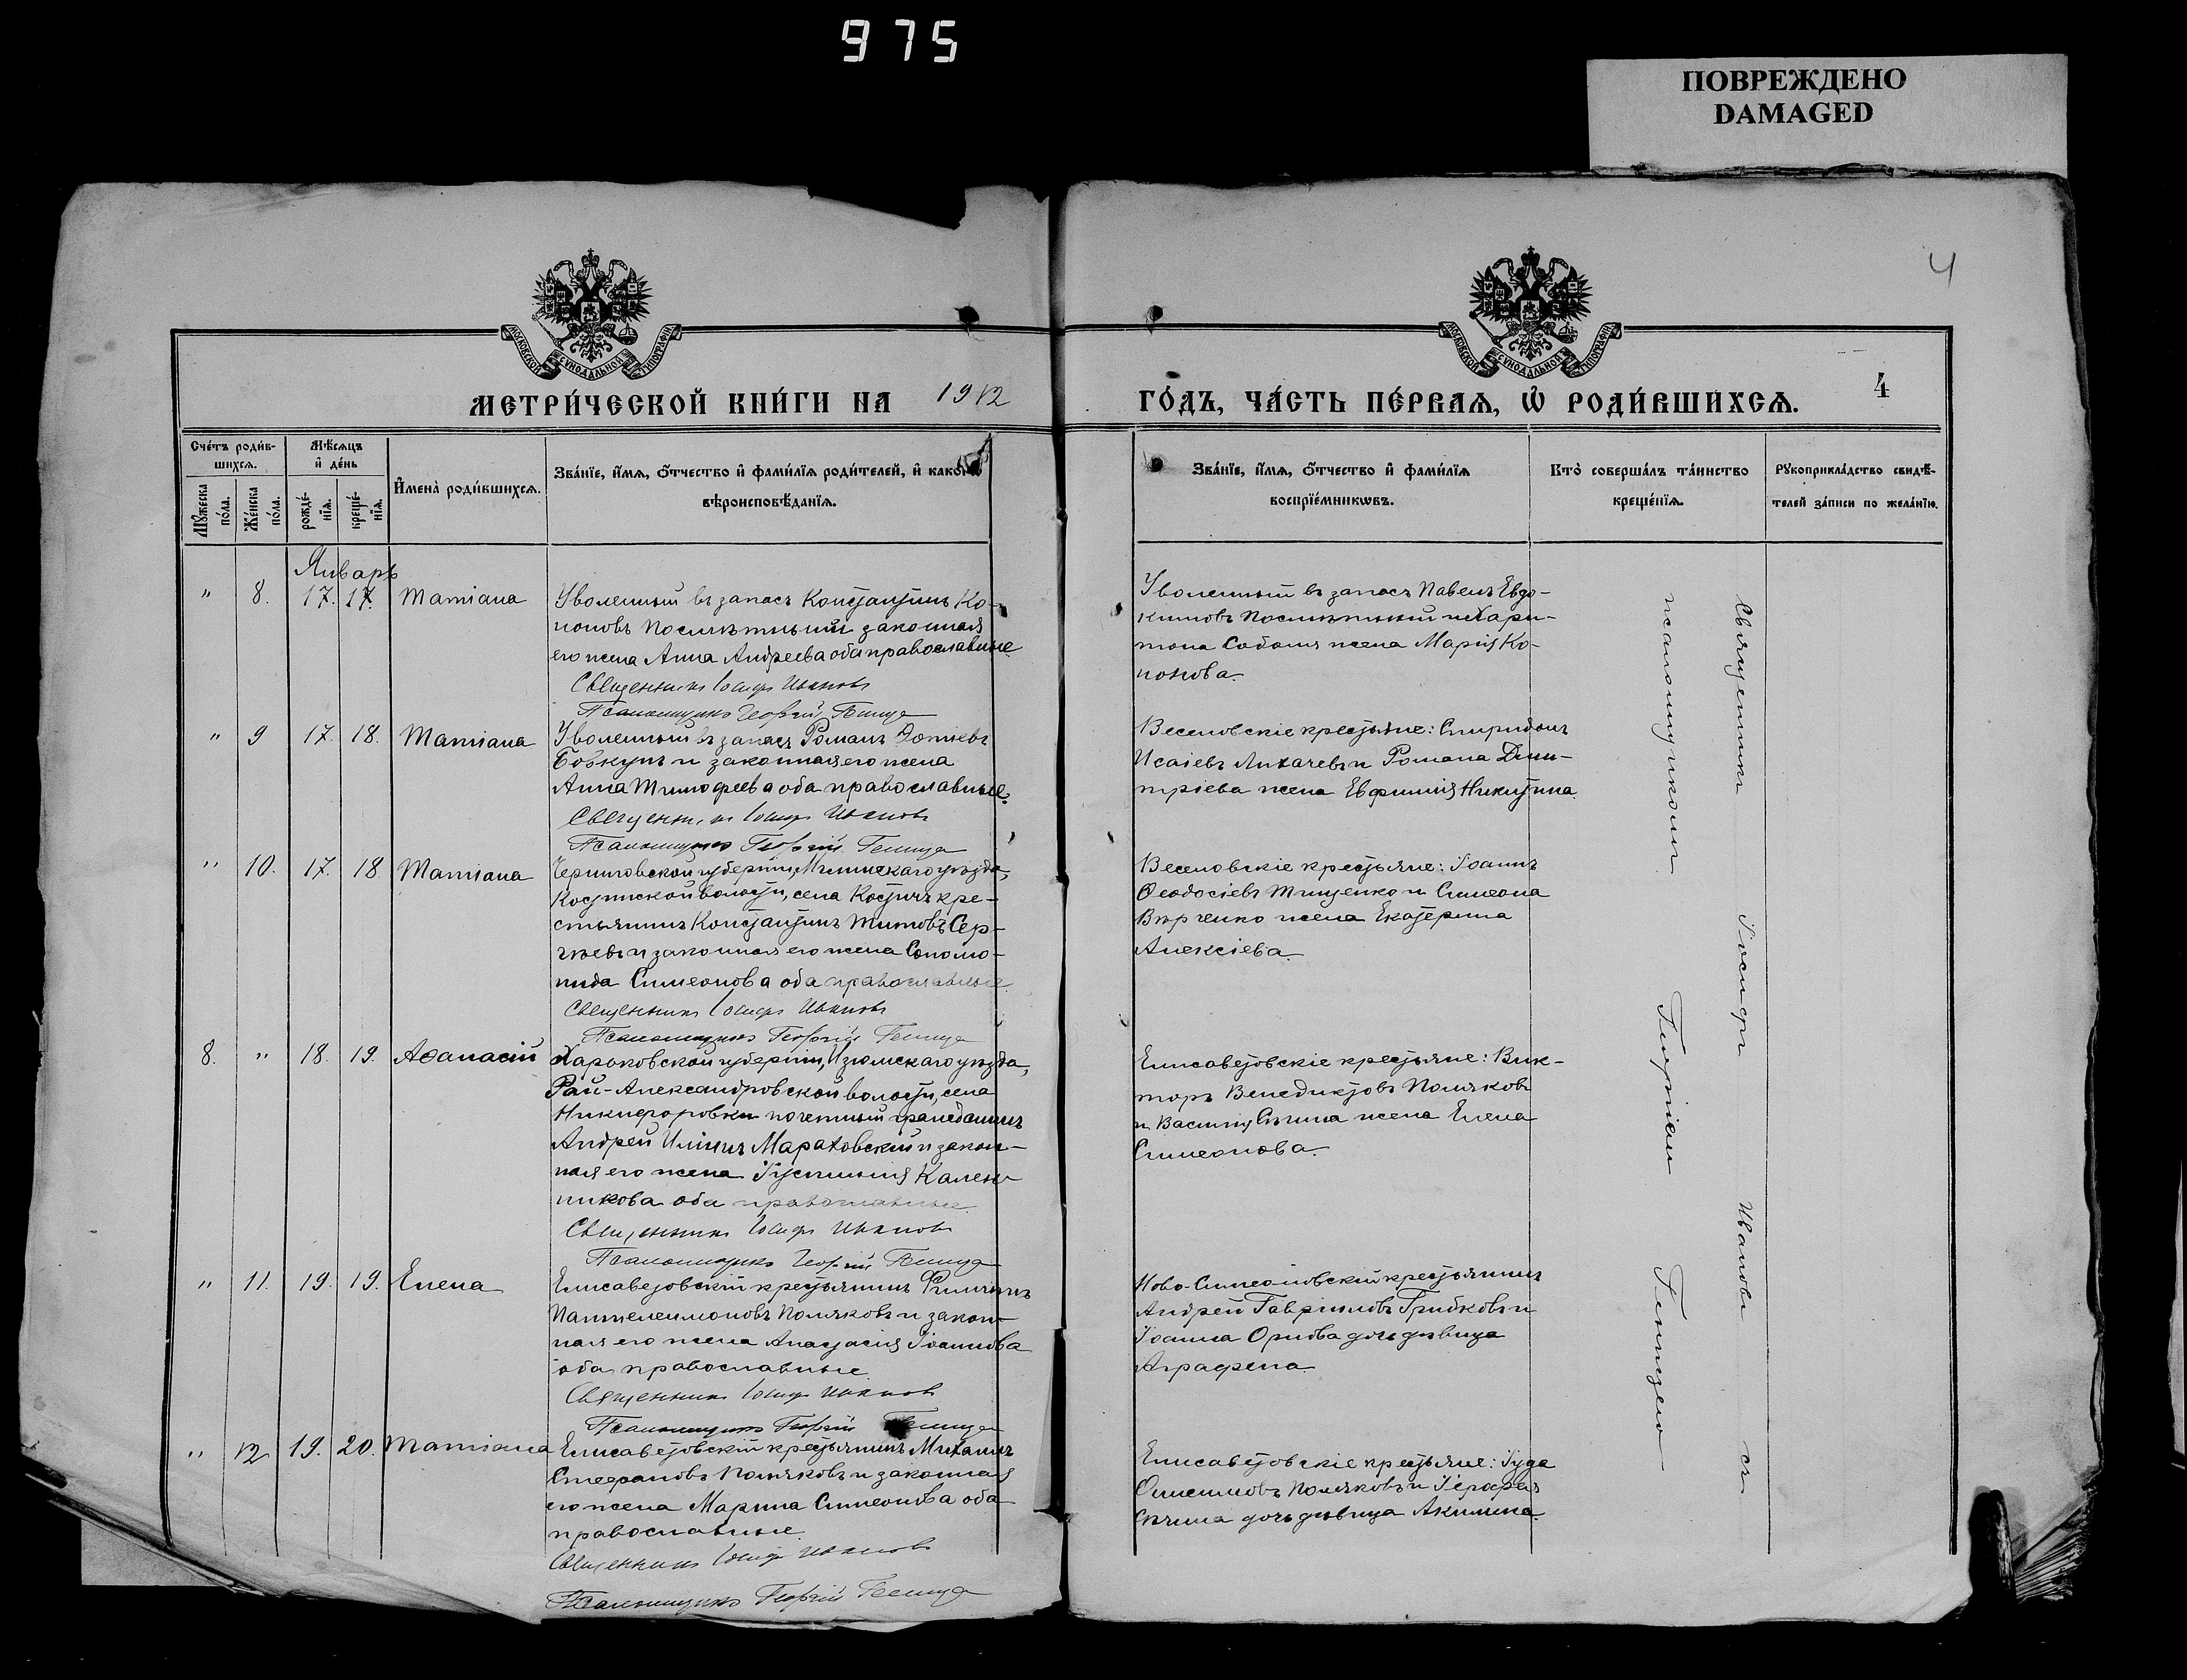 975
ПОВРЕЖДЕНО
DAMAGED
4
МОСКОВСКОЙ СѴНОДАЛЬНОЙ ТИПОГРАФІИ
МОСКОВСКОЙ СѴНОДАЛЬНОЙ ТИПОГРАФІИ
МЕТРИ́ЧЕСКОЙ КНИ́ГИ НА 1912
ГО́ДЪ, ЧА́СТЬ ПЕ́РВАѦ, Ѡ҆ РОДИ́ВШИХСѦ. 4
Сче́тъ роди́в-
шихсѧ.
Мꙋ́жеска по́ла.
Же́нска по́ла.
Мѣ́сѧцъ
и҆ де́нь
рожде́-
нїѧ.
креще́-
нїѧ.
И҆мена̀ роди́вшихсѧ.
Зва́нїе, и҆́мѧ, ѻ҆́тчество и҆ фами́лїѧ роди́телей, и҆ како́гѡ
вѣроисповѣ́данїѧ.
Зва́нїе, и҆́мѧ, ѻ҆́тчество и҆ фами́лїѧ
воспрїе́мникѡвъ.
Кто̀ соверша́лъ та́инство
креще́нїѧ.
Рꙋкоприкла́дство свидѣ́-
телей за́писи по жела́нїю.
Январь
" 8. 17. 17. Татіана
Уволенный въ запасъ Константинъ Ко-
ноновъ Послѣтный законная
его жена Анна Андреева оба православные
Священникъ Іосифъ Ивановъ
Псаломщикъ Георгій Геница
Уволенный въ запасъ Павелъ Евдо-
кимовъ Послѣтный и Хари-
тона Собаля жена Марія Ко-
нонова.
" 9 17. 18. Татіана
Уволенный въ запасъ Романъ
Бовкунъ и законная его жена
Анна Тимофеева оба православные.
Священникъ Іосифъ Ивановъ
Псаломщикъ Георгій Геница
Веселовскіе крестьяне: Спиридонъ
Исаіевъ Лихачевъ и Романа Дми-
тріева жена Евфимія Никитина.
" 10. 17. 18. Татіана
Черниговской губерніи, Мглинскаго уѣзда,
Костинской волости, села Костичъ кре-
стьянинъ Константинъ Титовъ Сер-
гѣевъ и законная его жена Соломо-
нида Симеонова оба православные
Священникъ Іосифъ Ивановъ
Псаломщикъ Георгій Геница
Веселовскіе крестьяне: Іоаннъ
Ѳеодосіевъ Тищенко и Симеона
Вѣрченко жена Екатерина
Алексіева.
8. " 18. 19. Аѳанасій
Харьковской губерніи, Изюмскаго уѣзда,
Рай-Александровской волости, села
Никифоровки почетный гражданинъ
Андрей Иліинъ Мараховскій и закон-
ная его жена Іустинія Калин-
никова оба православные
Священникъ Іосифъ Ивановъ
Псаломщикъ Георгій Геница
Елисаветовскіе крестьяне: Вик-
торъ Венедиктовъ Поляковъ
и Василія Сѣчина жена Елена
Симеонова.
" 11. 19. 19. Елена
Елисаветовскій крестьянинъ Филиппъ
Пантелеимоновъ Поляковъ и закон-
ная его жена Анастасія Іоаннова
оба православные
Священникъ Іосифъ Ивановъ
Псаломщикъ Георгій Геница
Ново-Симеоновскій крестьянинъ
Андрей Гавріиловъ Грибковъ и
Іоанна Орлова дочь дѣвица
Аграфена.
" 12 19. 20. Татіана
Елисаветовскій крестьянинъ Михаилъ
Стефановъ Поляковъ и законная
его жена Марина Симеонова оба
православные
Священникъ Іосифъ Ивановъ
Псаломщикъ Георгій Геница
Елисаветовскіе крестьяне: Іуда
Онисимовъ Поляковъ и
Сѣчина дочь дѣвица Акилина.
Священникъ Іосифъ Ивановъ съ
псаломщикомъ Георгіем Геницею